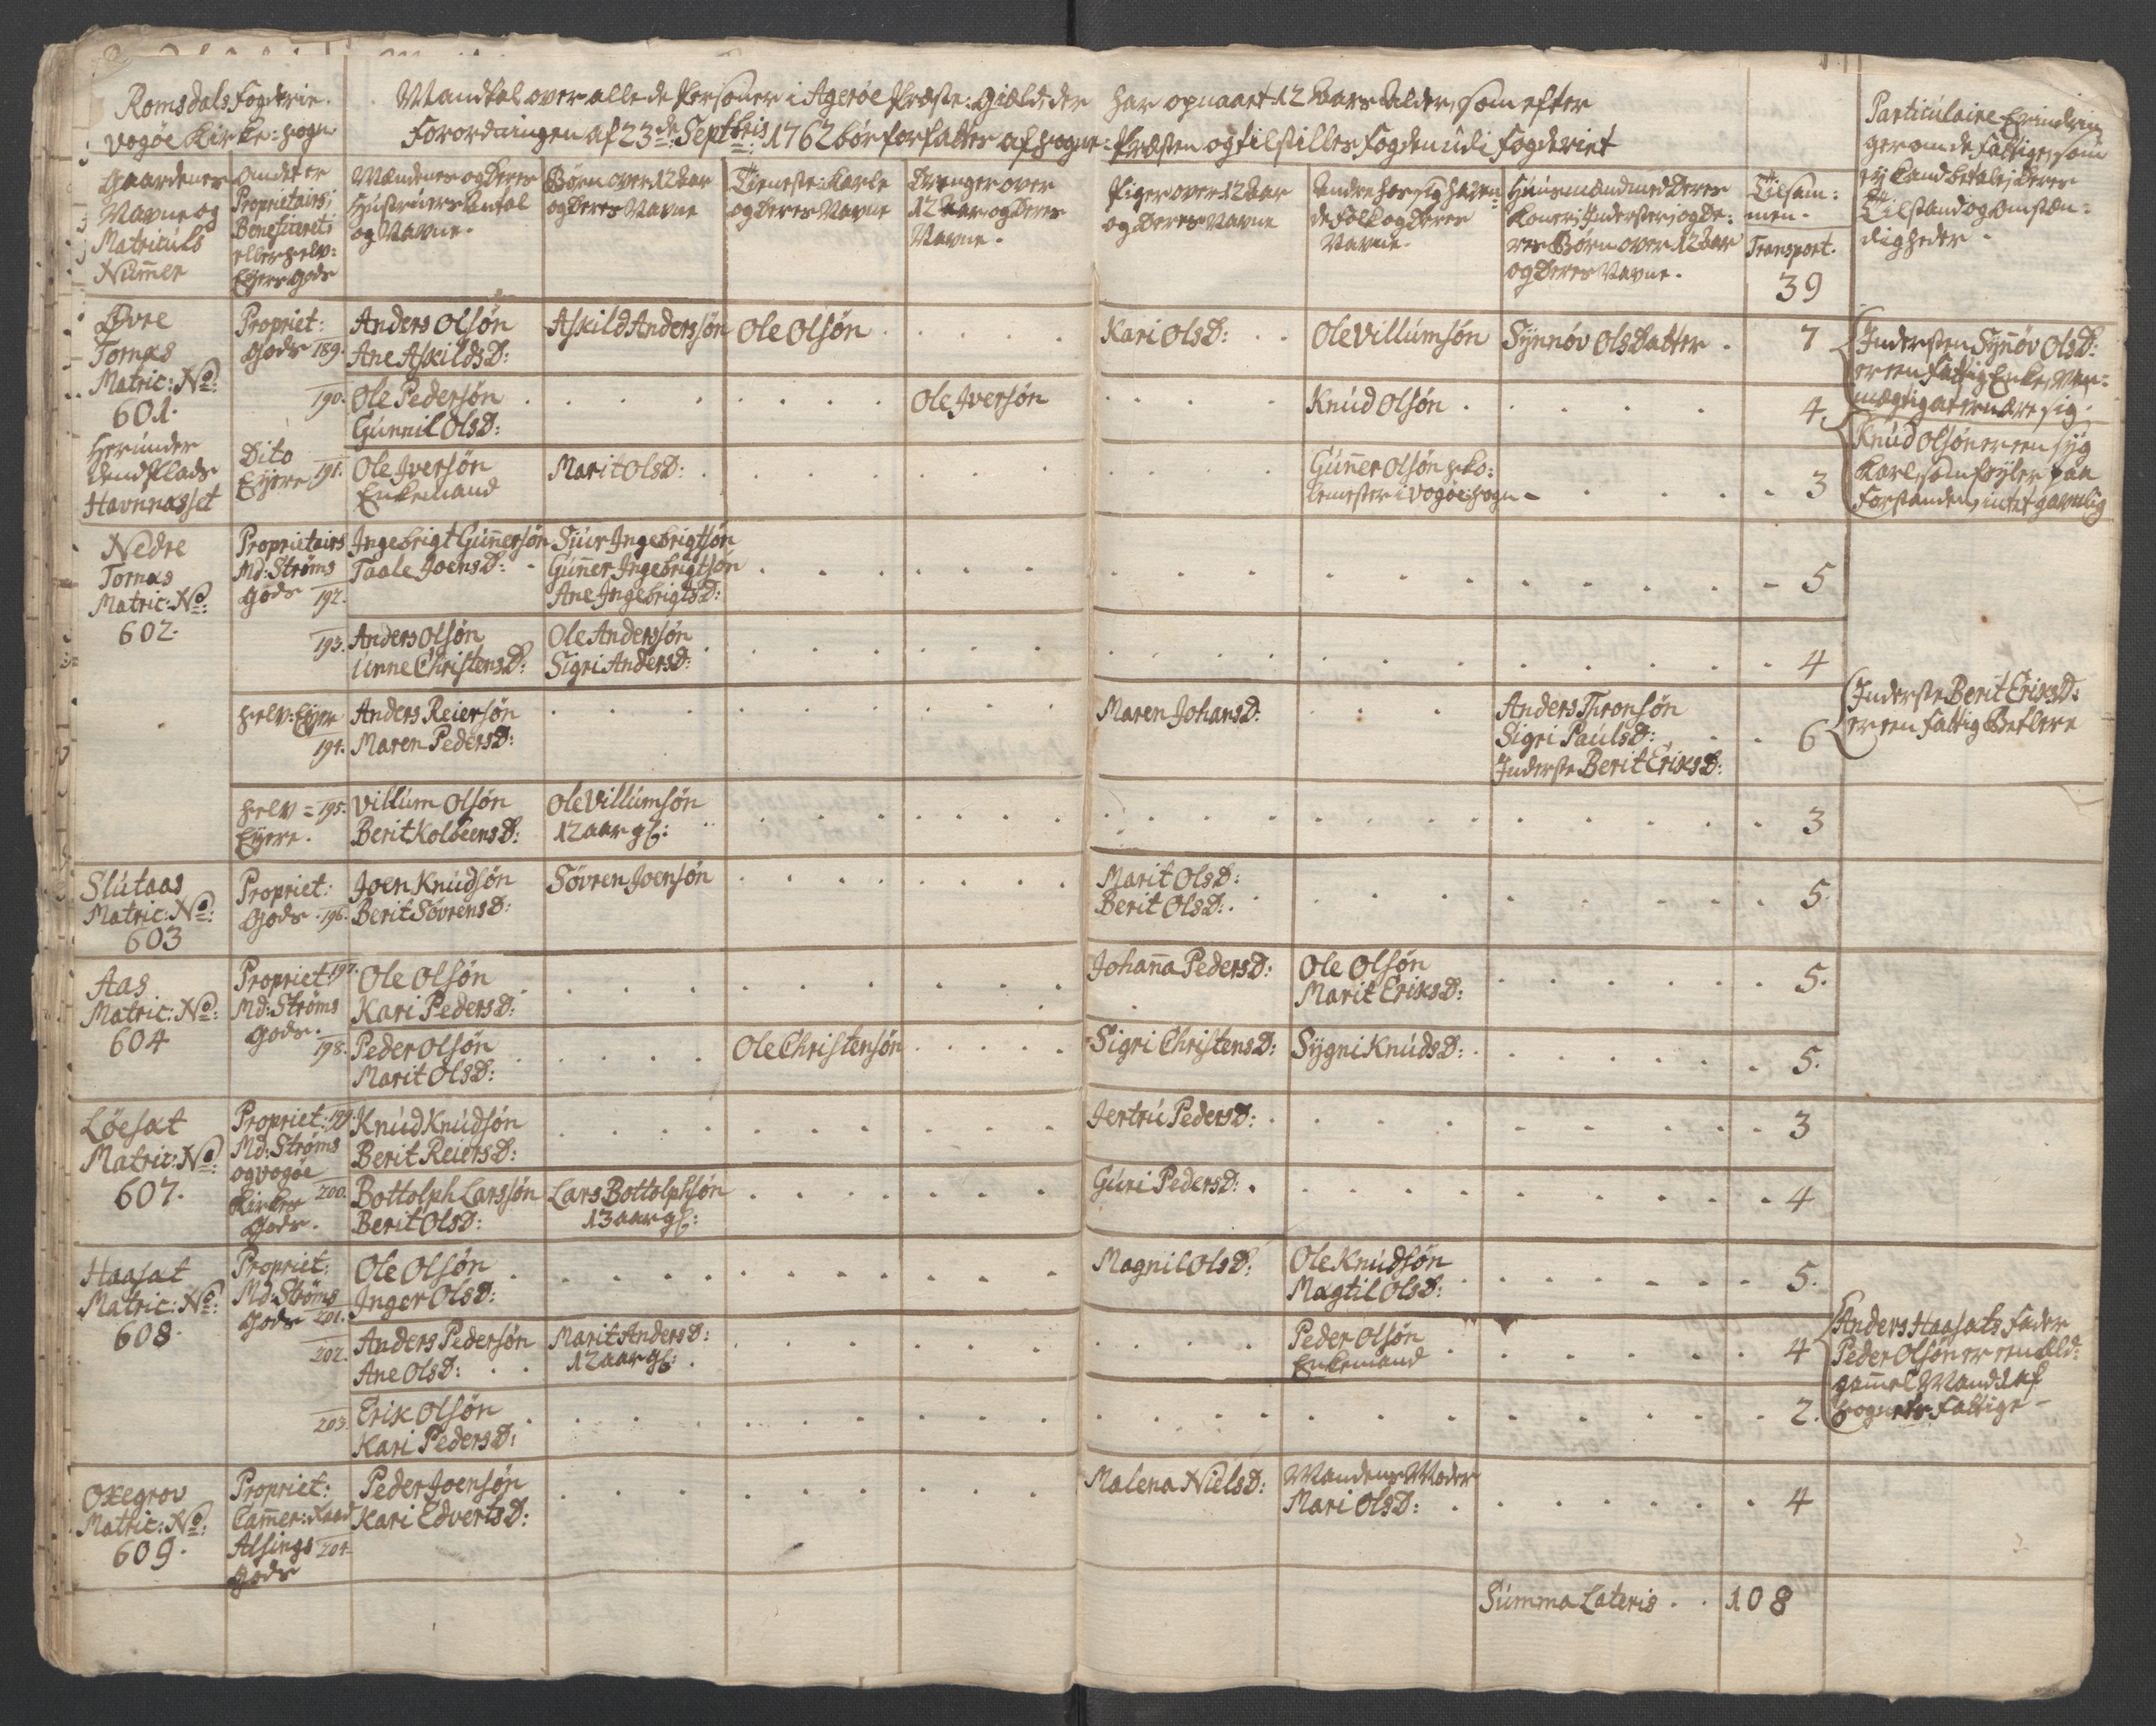 Romsdals Fogderie.
Vogøe Kirke-Sogn
Mandtal over alle de Persohner i Agerøe Præste-Gield, der har opnaaet 12 Aars Alder, som efter
Forordningen af 23de Septbris 1762 bør forfattes af Sogne-Præsten og tilstilles Fogden udi Fogderiet
Gaardenes
Navne og
Matriculs
Nummer
Om det er
Proprietairs,
Beneficeret,
eller Selv-
Eyers Gods
Mændenes og Deres
Hustruers Antal
og Navne.
Børn over 12 Aar
og Deres Navne
Tieneste-Karle
og Deres Navne
Drenger over
12 Aar og Deres
Navne.
Piger over 12 Aar
og Deres Navne
Andre hos sig haven-
de Folk og Deres
Navne.
Huusmænd med Deres
Koner, Inderster, og De-
res Børn over 12 Aar
og Deres Navne.
Tilsam-
men.
Transport.
39
Particulaire Erindrin-
ger om de Fattige, som
ey kand betale, Deres
Tilstand og Omstæn-
digheder.
Øvre
Tornæs
Matric: No:
601.
Herunder
Uendplads
Havnnæsset
Propriet:
Gods 189.
Anders Olsøn
Ane Askilds D:
Askild Anderssøn
Ole Olsøn
Kari Ols D:
Ole Villumsøn
Synnøv Olsdatter
7
Indersten Synøv Ols D:
er een Fattig Enke, Van-
mægtig at ernære sig.
190.
Ole Pedersøn
Gunnil Ols D:
Ole Iversøn
Knud Olsøn
4.
Knud Olsøn er een syg
Karl, som feyler paa
Forstanden, intet gavnlig
Dito
Eyere 191.
Ole Iversøn
Enkemand
Marit Ols D:
Guner Olsøn Sko-
lemester i Vogøe Sogn
3
Nedre
Tornæs
Matric: No:
602.
Proprietairs
Md: Strøms
Gods 192.
Ingebrigt Gunnersøn
Taale Joens D:
Siur Ingebrigtsøn
Guner Ingebrigtsøn
Ane Ingebrigts D:
5
193.
Anders Olsøn
Unne Christens D:
Ole Anderssøn
Sigri Anders D:
4
Selv-Eyere
194.
Anders Reiersøn
Maren Peders D:
Maren Johans D:
Anders Thronsøn
Sigri Pauls D:
Inderste Berit Eriks D:
6
Inderste Berit Eriks D:
er een Fattig Betlere
Selv- 195.
Eyere.
Villum Olsøn
Berit Kolbeens D:
Ole Villumsøn
12 aar gl:
3
Slutaas
Matric: No:
603
Propriet:
Gods 196.
Joen Knudsøn
Berit Søvrens D:
Søvren Joensøn
Marit Ols D:
Berit Ols D:
5.
Aas
Matric: No:
604
Propriet: 197.
Md: Strøms
Gods.
Ole Olsøn
Kari Peders D:
Johanna Peders D:
Ole Olsøn
Marit Eriks D:
5.
198.
Peder Olsøn
Marit Ols D:
Ole Christensøn
Sigri Christens D:
Sygni Knuds D:
5.
Løesæt
Matric: No:
607.
Propriet: 199.
Md: Strøms
og Vogøe
Kirkes
Gods.
Knud Knudsøn
Berit Reiers D:
Jertru Peders D:
3
200.
Bottolph Larssøn
Berit Ols D:
Lars Bottolphsøn
13 aar gl:
Guri Peders D:
4
Haasæt
Matric: No:
608.
Propriet:
Md: Strøms
Gods 201.
Ole Olsøn
Inger Ols D:
Magnil Ols D:
Ole Knudsøn
Magtil Ols D:
5.
202.
Anders Pedersøn
Ane Ols D:
Marit Anders D:
12 aar gl:
Peder Olsøn
Enkemand
4
Anders Haasæts Fader
Peder Olsøn er een æld-
gamel Mand, 1 af
Sognets Fattige
203.
Erik Olsøn
Kari Peders D:
2.
Oxegrov
Matric: No:
609.
Propriet:
Camer-Raad
Alsings 204.
Gods
Peder Joensøn
Kari Edverts D:
Malena Niels D:
Mandens Moder
Mari Ols D:
4
Summa Lateris
108